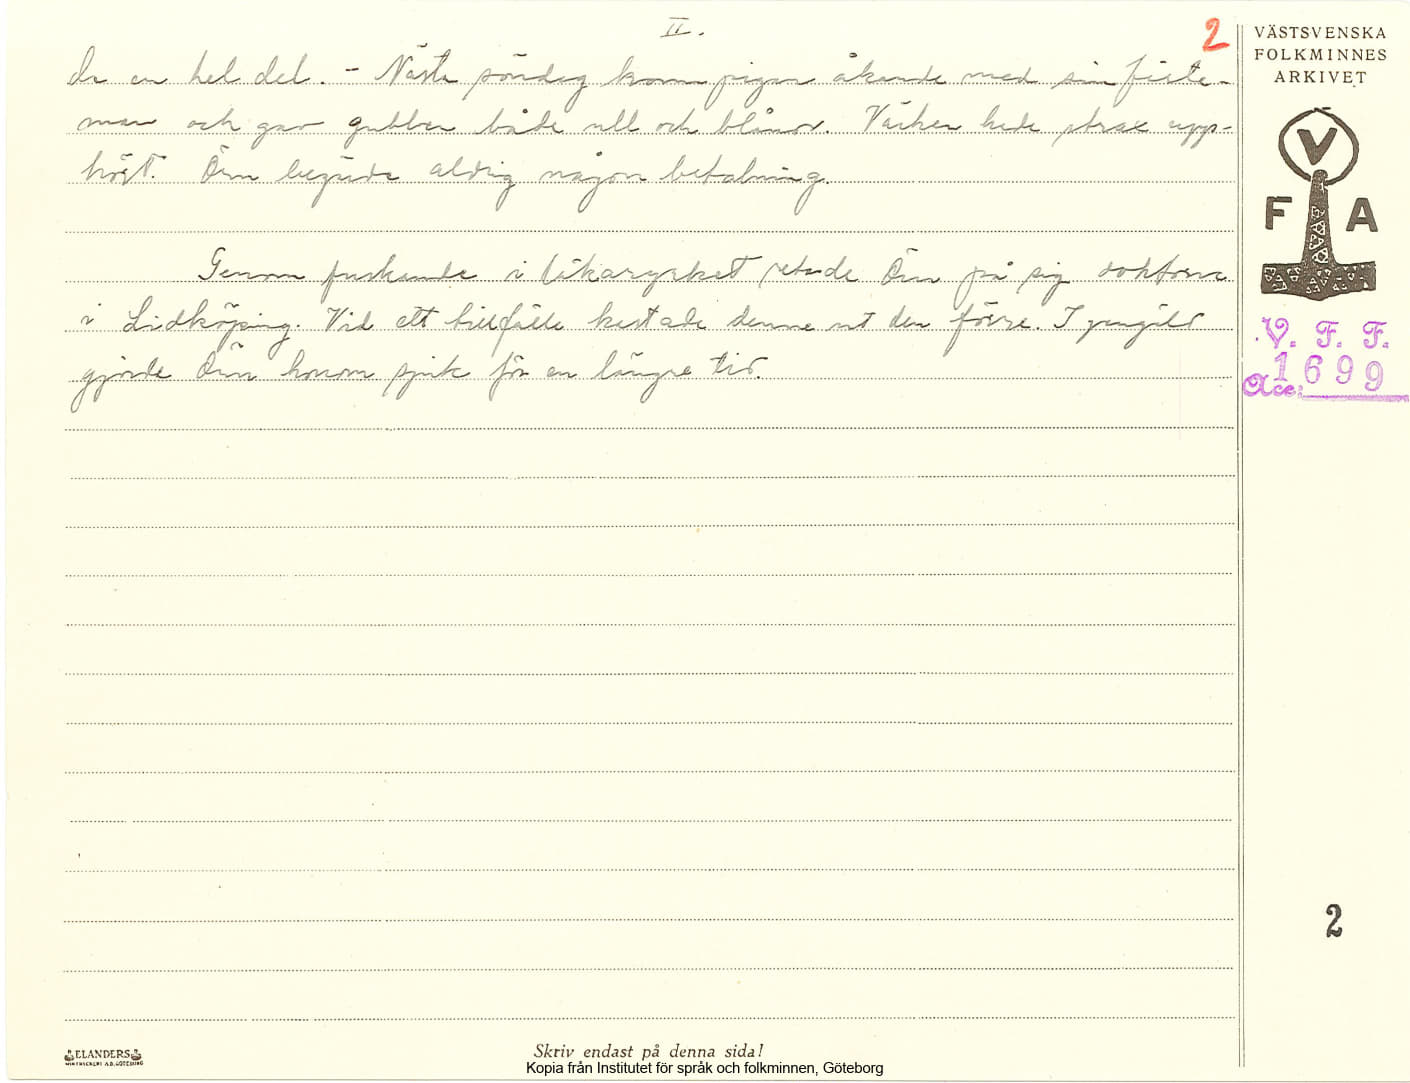 II.
2
de en hel del. – Nästa söndag kom pigan åkande med sin fäste-
man och gav gubben både ull och blånor. Värken hade strax upp-
hört. Örn begärde aldrig någon betalning.
Genom fuskande i läkaryrket retade Örn på sig doktorn
i Lidköping. Vid ett tillfälle kastade denne ut den förre. I gengäld
gjorde Örn honom sjuk för en längre tid.
VÄSTSVENSKA
FOLKMINNES
ARKIVET
V
F A
V. F. F.
Acc: 1699
2
ELANDERS
Skriv endast på denna sida!
Kopia från Institutet för språk och folkminnen, Göteborg